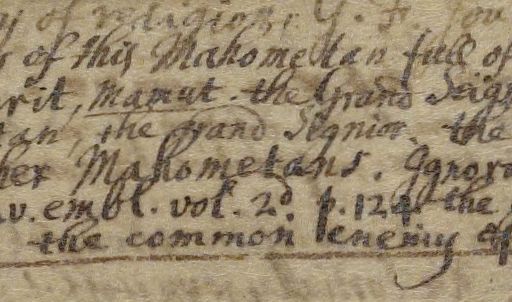 of religion. G. F. 
of this Mahometan full of
rit, Mamut. the Grand Seig
tan, the grand Signior. the
her Mahometans. Ignora
v. embl. vol. 2d p. 124 the
the common enemy of